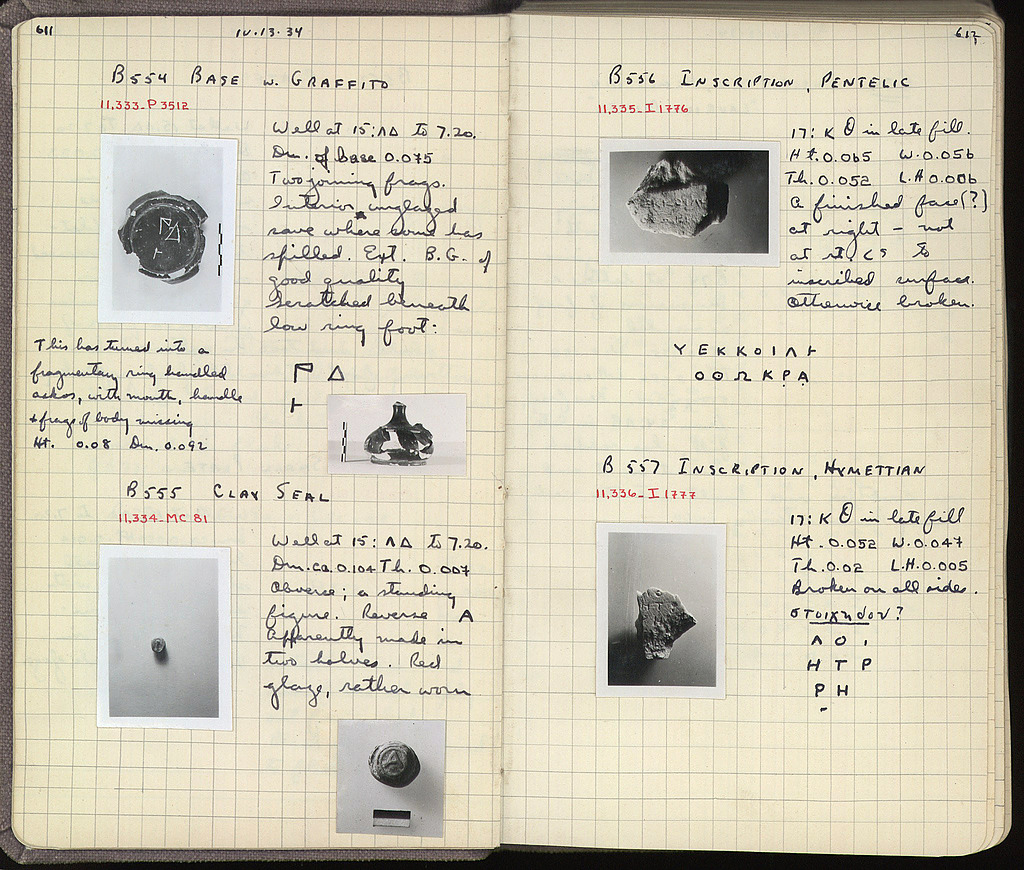 611
IV.13.34
B554 BASE w. GRAFFITO
11,333-P 3512
Well at 15:ΛΔ to 7.20.
Dm. of base 0.075
Two joining frags.
Interior unglazed
save where some has
spilled. Ext. B.G. of
good quality
Scratched beneath
low ring foot:
This has turned into a
fragmentary ring handled
askos, with mouth, handle
+ frags of body missing
Ht. 0.08 Dm. 0.092
Δ
B555 CLAY SEAL
11,334-MC 81
Well at 15:ΛΔ to 7.20.
Dm. ca. 0.104 Th. 0.007
Obverse; a standing
figure. Reverse A
Apparently made in
two halves. Red
glaze, rather worn
612
B556 INSCRIPTION, PENTELIC
11,335-I 1776
17: K Θ in late fill.
Ht. 0.065 W. 0.056
Th. 0.052 L.H 0.006
A finished face(?)
at right – not
at rt. <s to
inscribed surface.
Otherwise broken.
Υ Ε Κ Κ Ο Ι Λ Ͱ
Ο Θ Ω Κ Ρ Α
B 557 INSCRIPTION, HYMETTIAN
11,336-I 1777
17: K Θ in late fill
Ht. 0.052 W. 0.047
Th. 0.02 L.H. 0.005
Broken on all sides.
στοιχηδον?
Λ Ο Ι
Η Τ Ρ
Ρ Η